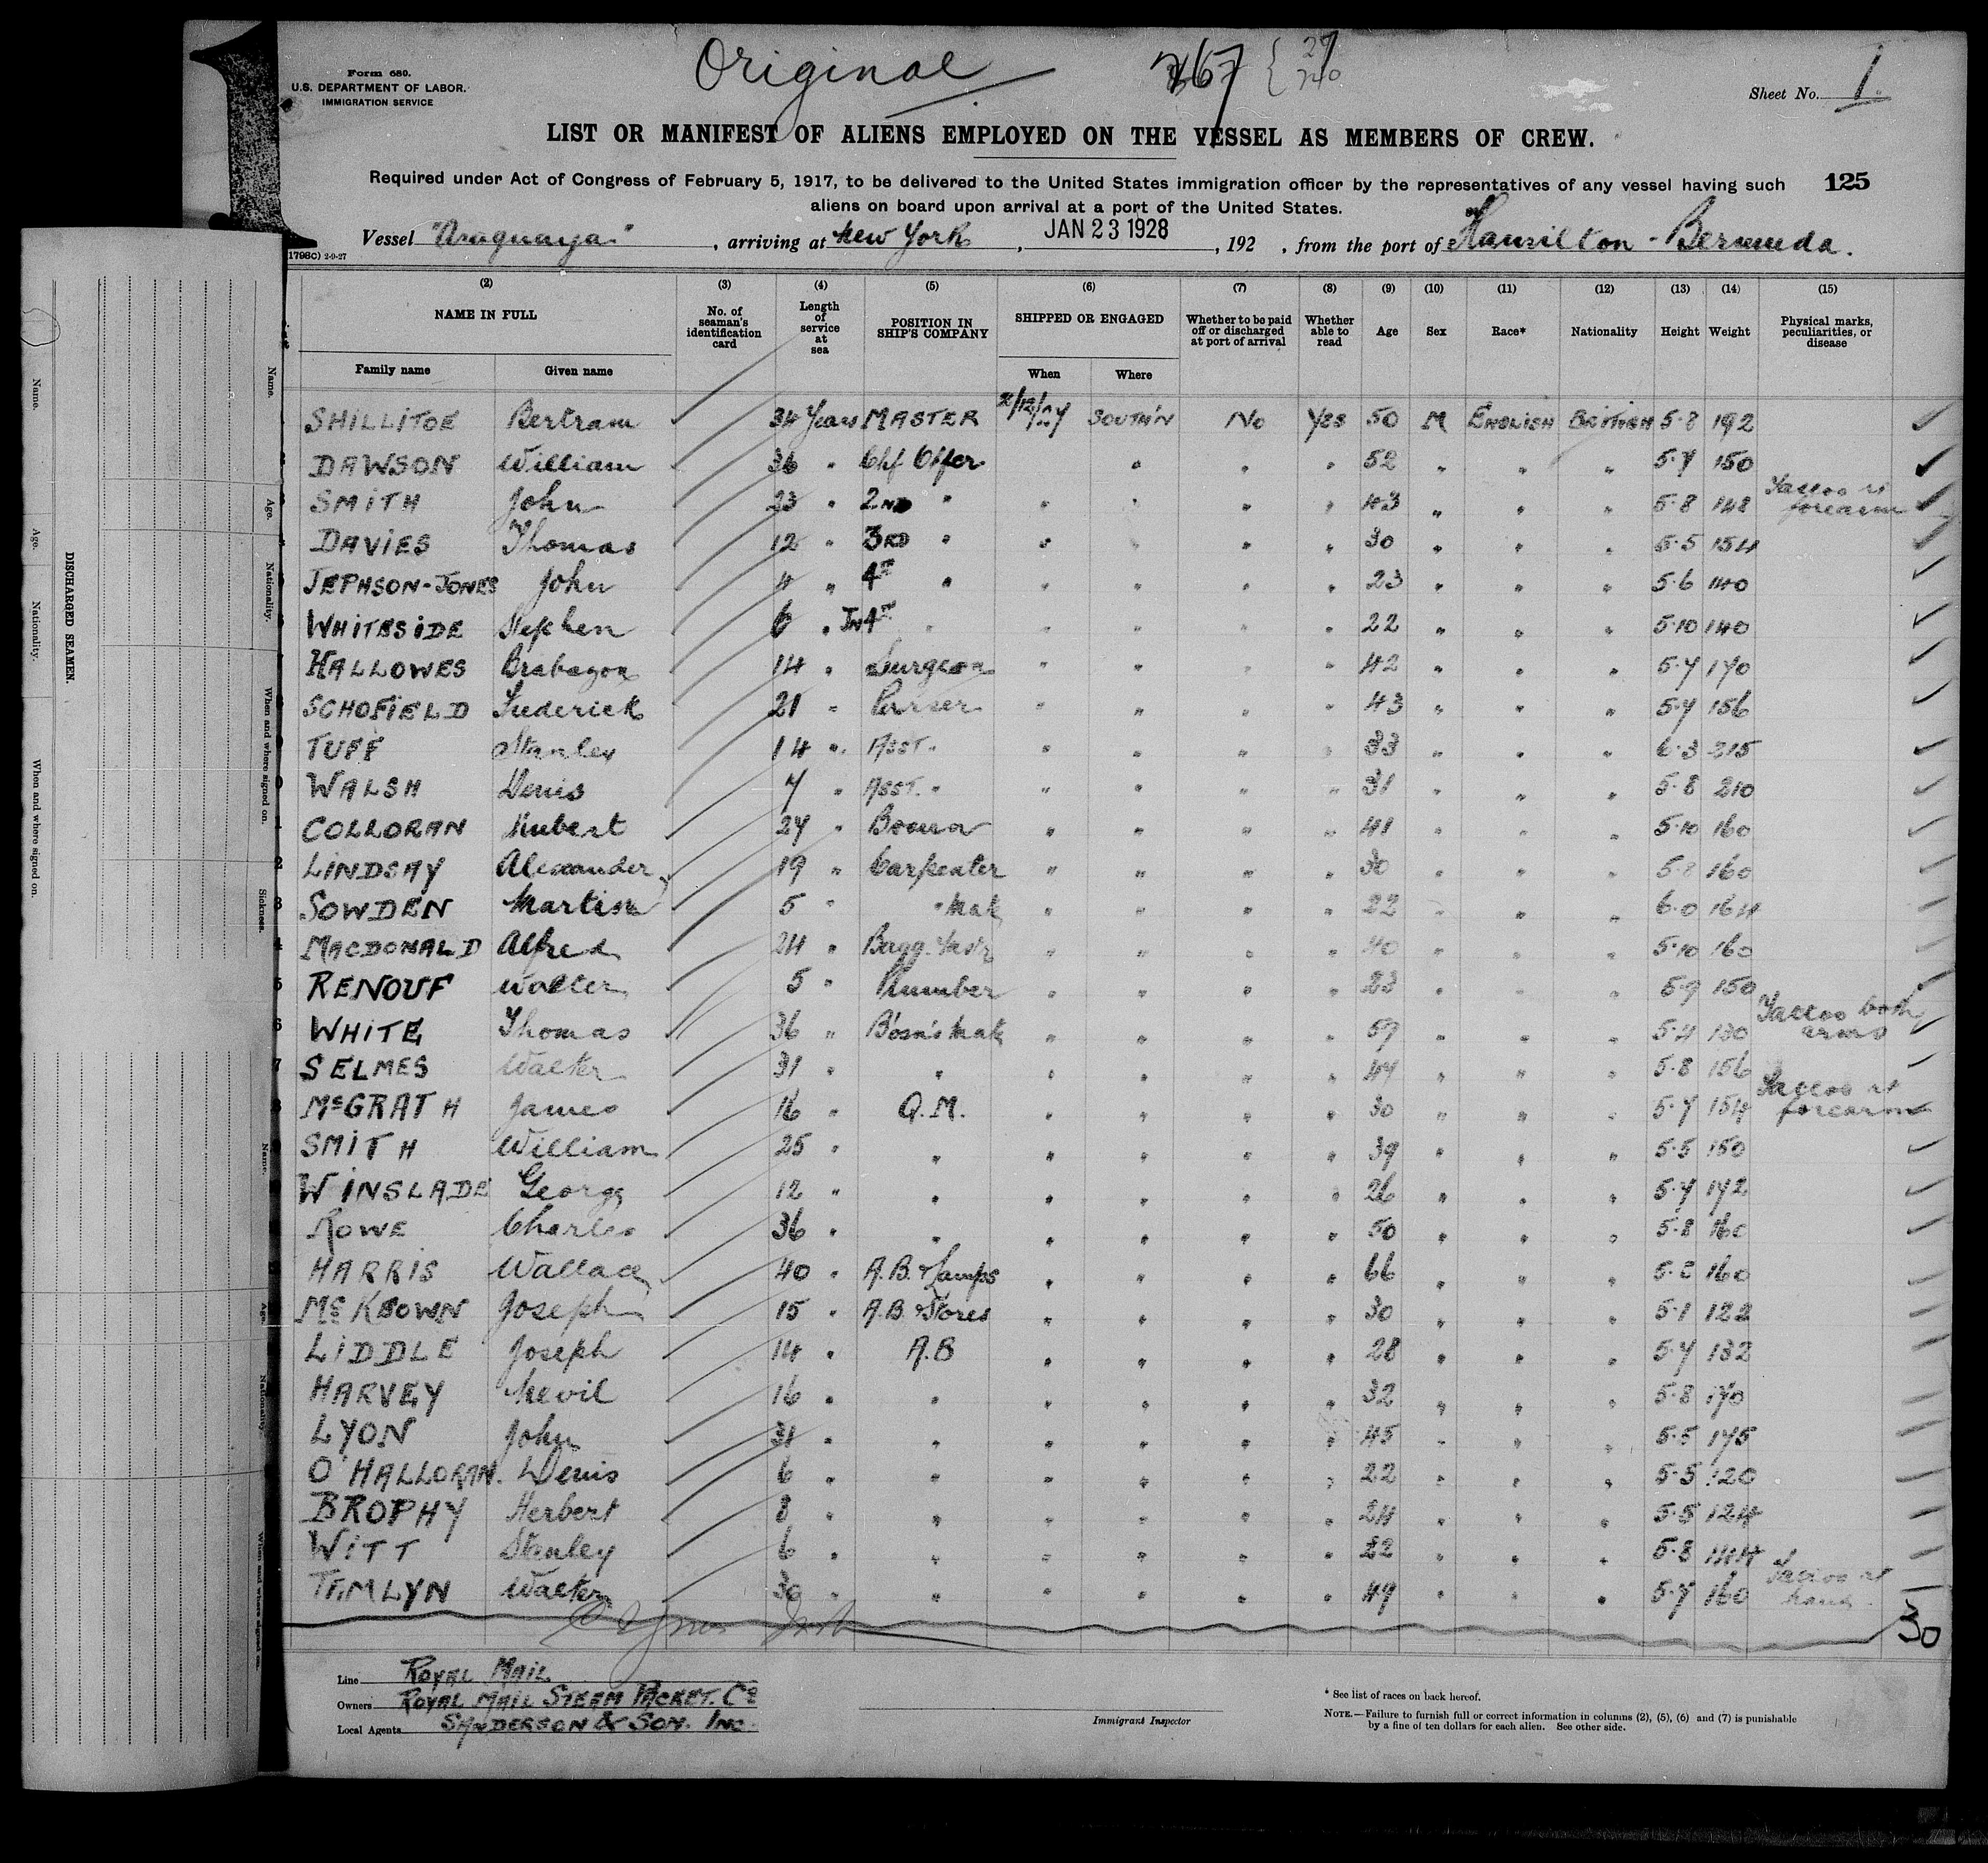 Original 267 { 27 240
Form 680.
U.S. DEPARTMENT OF LABOR.
IMMIGRATION SERVICE
Sheet No. 1
LIST OR MANIFEST OF ALIENS EMPLOYED ON THE VESSEL AS MEMBERS OF CREW.
Required under Act of Congress of February 5, 1917, to be delivered to the United States immigration officer by the representatives of any vessel having such 125
aliens on board upon arrival at a port of the United States.
Vessel "Araguaya" , arriving at New York , JAN 23 1928 , 192 , from the port of Hamilton - Bermuda.
(2) (3) (4) (5) (6) (7) (8) (9) (10) (11) (12) (13) (14) (15)
NAME IN FULL No. of seaman's identification card Length of service at sea POSITION IN SHIP'S COMPANY SHIPPED OR ENGAGED Whether to be paid off or discharged at port of arrival Whether able to read Age Sex Race* Nationality Height Weight Physical marks, peculiarities, or disease
Family name Given name When Where
SHILLITOE Bertram 34 Years MASTER SOUTH'N No Yes 50 M ENGLISH BRITISH 5·8 192
DAWSON William 36 " Chf Offcr " " " 52 " " " 5·7 150
SMITH John 23 " 2ND " " " " " 43 " " " 5·8 148 Tattoo rt forearm
DAVIES Thomas 12 " 3RD " " " " " 30 " " " 5·5 154
JEPHSON-JONES John 4 " 4TH " " " " " 23 " " " 5·6 140
WHITESIDE Stephen 6 " Jn 4TH " " " " " 22 " " " 5·10 140
HALLOWES Brabazon 14 " Surgeon " " " " 42 " " " 5·7 170
SCHOFIELD Frederick 21 " Purser " " " " 43 " " " 5·7 156
TUFF Stanley 14 " ASST. " " " " " 33 " " " 6·3 215
WALSH Denis 7 " ASST. " " " " " 31 " " " 5·8 210
COLLORAN Hubert 27 " Bosun " " " " 41 " " " 5·10 160
LINDSAY Alexander 19 " Carpenter " " " " 30 " " " 5·8 160
SOWDEN Martin 5 " " Mate " " " " 22 " " " 6·0 164
MACDONALD Alfred 24 " Bagg. Mastr " " " " 40 " " " 5·10 160
RENOUF Walter 5 " Plumber " " " " 23 " " " 5·9 150
WHITE Thomas 36 " Bosn's Mate " " " " " " " 5·4 130 Tattoo both arms
SELMES Walter 31 " " " " " " 47 " " " 5·8 156
McGRATH James 16 " Q.M. " " " " 30 " " " 5·7 154 Tattoo rt forearm
SMITH William 25 " " " " " " 39 " " " 5·5 150
WINSLADE George 12 " " " " " " 26 " " " 5·7 172
ROWE Charles 36 " " " " " " 50 " " " 5·8 160
HARRIS Wallace 40 " A.B. & Lamps " " " " 66 " " " 160
McKEOWN Joseph 15 " A.B. & Stores " " " " 30 " " " 5·1 122
LIDDLE Joseph 14 " A.B " " " " 28 " " " 5·7 132
HARVEY Nevil 16 " " " " " " 32 " " " 5·8 170
LYON John 31 " " " " " " 45 " " " 5·5 175
O'HALLORAN. Denis 6 " " " " " " 22 " " " 5·5 120
BROPHY Herbert 8 " " " " " " 24 " " " 5·5 124
WITT Stanley 6 " " " " " " 22 " " " 5·8 144
TAMLYN Walter 30 " " " " " " 49 " " " 5·7 160 Tattoo rt hand
30
Line ROYAL MAIL
Owners ROYAL MAIL STEAM PACKET. Co
Local Agents SANDERSON & SON. INC.
Immigrant Inspector
* See list of races on back hereof.
NOTE.—Failure to furnish full or correct information in columns (2), (5), (6) and (7) is punishable
by a fine of ten dollars for each alien. See other side.
DISCHARGED SEAMEN.
Name. Age. Nationality. When and where signed on.
Name. Age. Nationality. When and where signed on. Sickness.
Name. Age. Nationality. When and where signed on.
1798C) 2-9-27